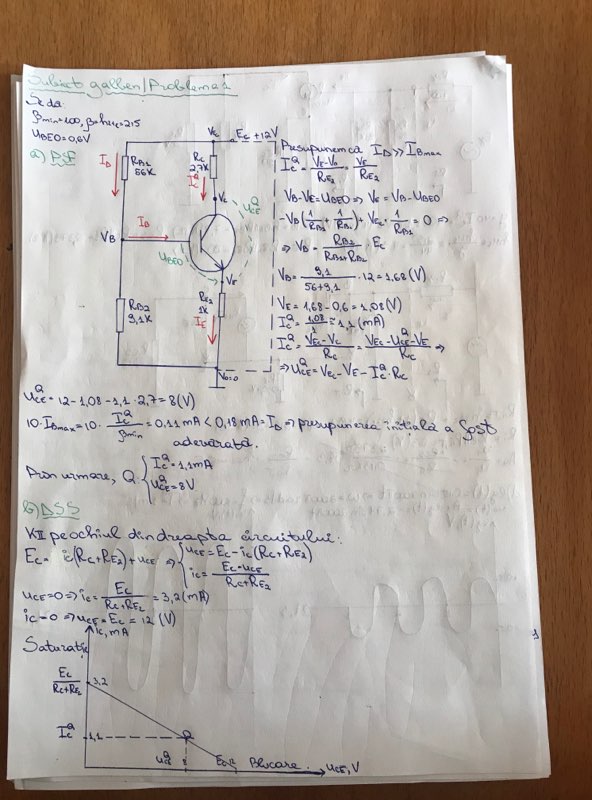 Subiect galben/Problema 1
Se dă:
βmin=100, β=hfe=215
UBE0=0,6V
a) PSF
Vc Ec +12V
ID
RB1
56K
RC
2,7K
IC^Q
Vc
VB
IB
UCE^Q
UBE0
VE
RB2
9,1K
RE2
1K
IE
V0=0
Presupunem că ID >> IBmax
IC^Q = (VE-V0)/RE2 = VE/RE2
VB-VE=UBE0 => VE=VB-UBE0
-VB(1/RB2 + 1/RB1) + VEc · 1/RB1 = 0 =>
=> VB = RB2/(RB1+RB2) · Ec
VB = 9,1/(56+9,1) · 12 = 1,68(V)
VE = 1,68-0,6 = 1,08(V)
IC^Q = 1,08/1 = 1,1(mA)
IC^Q = (VEc-Vc)/RC = (VEc-UCE^Q-VE)/RC =>
=> UCE^Q = VEc-VE-IC^Q·RC
UCE^Q = 12-1,08-1,1·2,7 = 8(V)
10·IBmax = 10 · IC^Q/βmin = 0,11mA < 0,18mA = ID => presupunerea inițială a fost
adevărată.
Prin urmare, Q: { IC^Q = 1,1mA
UCE^Q = 8V
b) DSS
KII pe ochiul din dreapta circuitului:
Ec = ic(RC+RE2)+uCE => { uCE = Ec-ic(RC+RE2)
ic = (Ec-uCE)/(RC+RE2)
uCE=0 => ic = Ec/(RC+RE2) = 3,2(mA)
ic=0 => uCE = Ec = 12 (V)
ic, mA
Saturație
Ec/(RC+RE2) 3,2
IC^Q 1,1
Q
UCE^Q 8 Ec 12 Blocare uCE, V